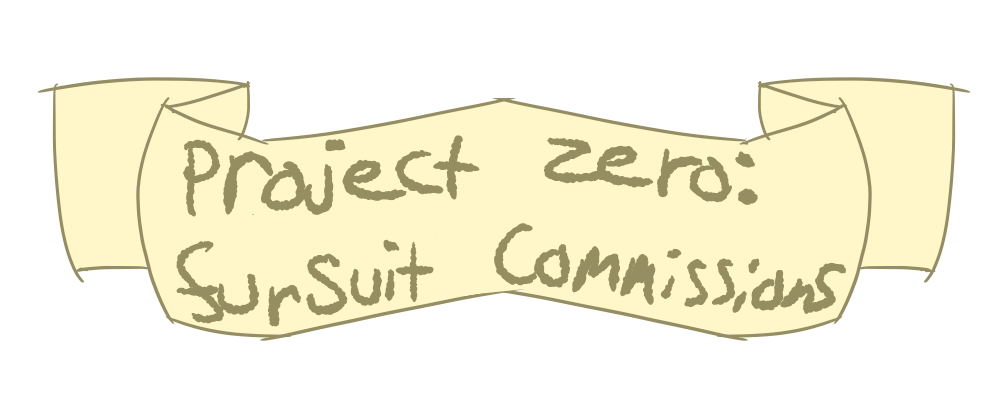 Project zero:
fursuit Commissions